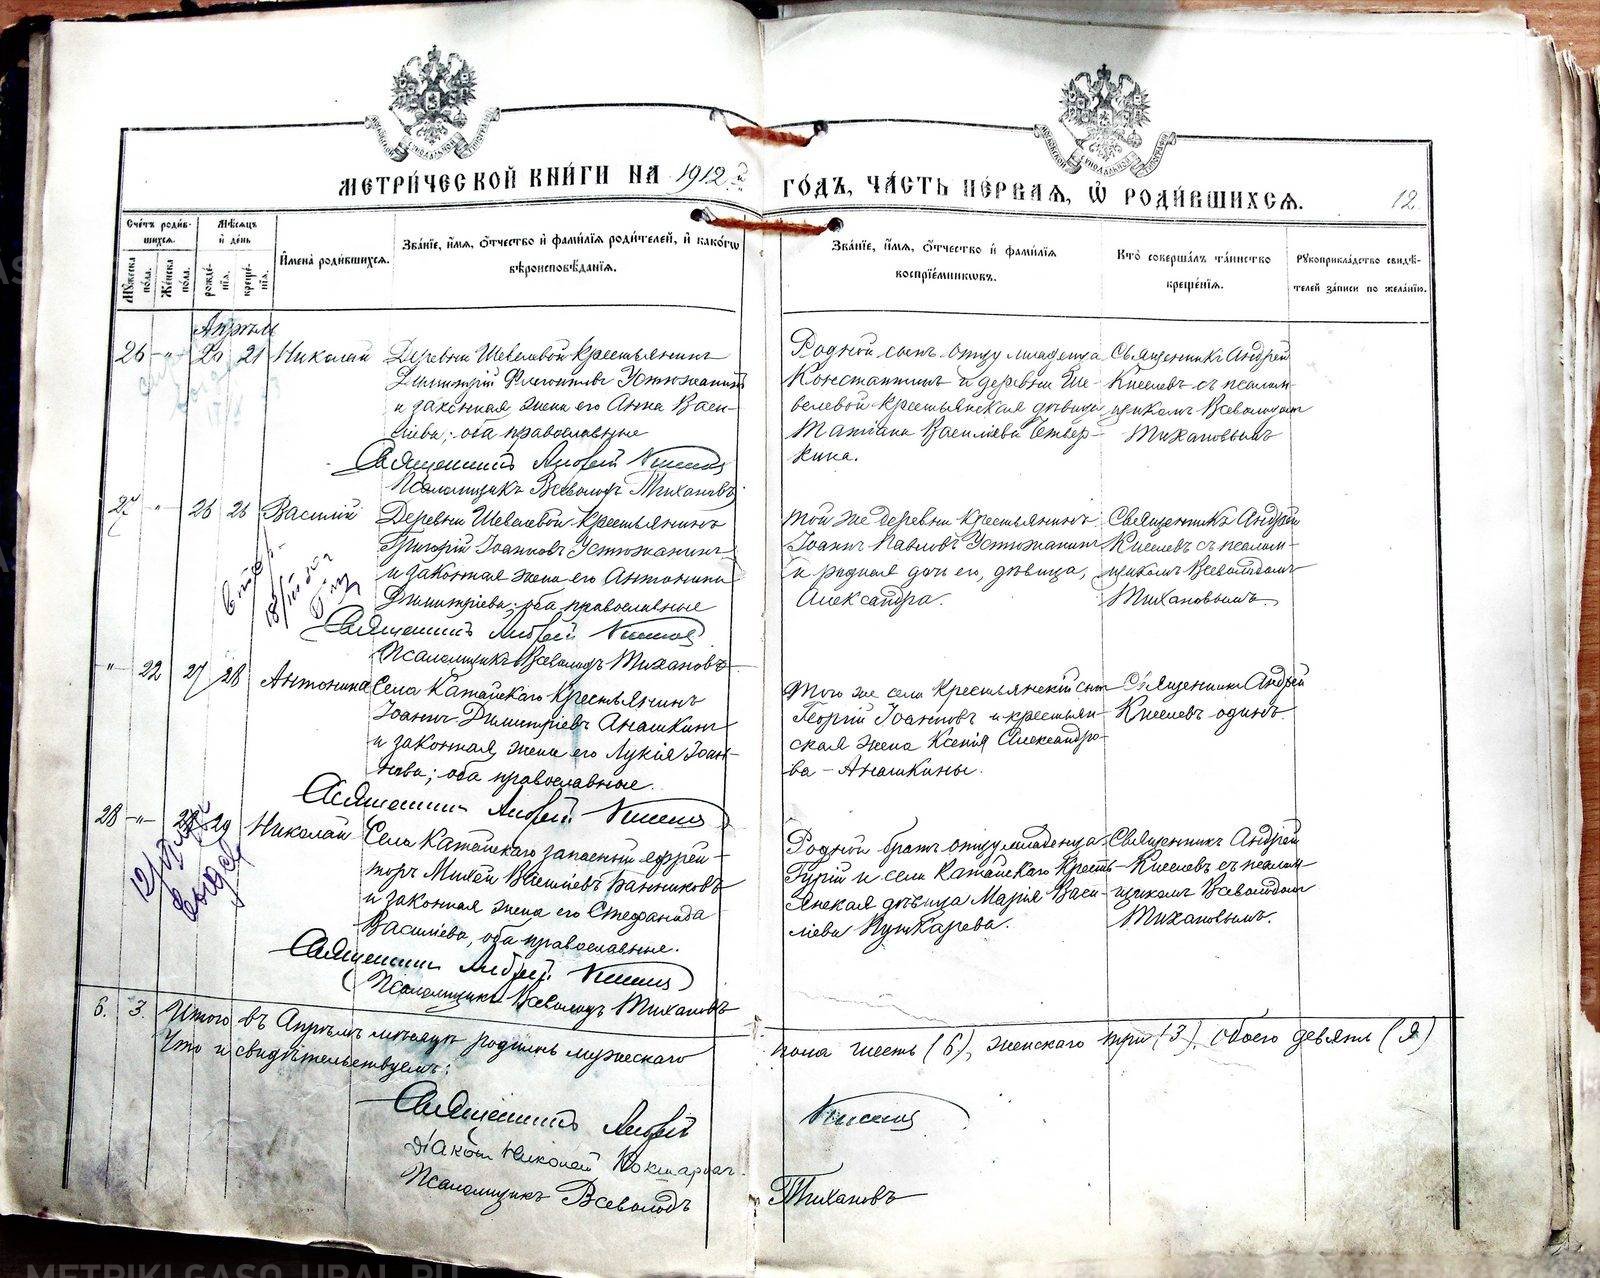 МЕТРИ́ЧЕСКОЙ КНИ́ГИ НА 1912 ГО́ДЪ, ЧА́СТЬ ПЕ́РВАЯ, Ѽ РОДИ́ВШИХСЯ.
12.
Сче́тъ роди́в-
шихся.
Му́жеска по́ла.
Же́нска по́ла.
Мѣ́сяцъ
и́ де́нь
рожде́-
нїя.
креще́-
нїя.
И҆мена̀ роди́вшихся.
Зва́нїе, и҆́мя, ѻ҆́тчество и҆ фами́лїя роди́телей, и҆ како́гѡ
вѣроисповѣ́данїя.
Зва́нїе, и҆́мя, ѻ҆́тчество и҆ фами́лїя
воспрїе́мниковъ.
Кто̀ соверша́лъ та́инство
креще́нїя.
Рꙋкоприкла́дство свидѣ́-
телей за́писи по жела́нїю.
Апрѣль
26 -"- 20 21 Николай
Деревни Шевелевой крестьянинъ
Димитрій Устюжанинъ
и законная жена его Анна Васи-
ліева; оба православные
Священникъ Андрей Киселевъ
Псаломщикъ Всеволодъ Тихановъ
Родной сынъ отцу младенца
Константинъ и деревни Ше-
велевой крестьянская дѣвица
Татіана Василіева Четвер-
кина.
Священникъ Андрей
Киселевъ съ псалом-
щикомъ Всеволодомъ
Тихановымъ
27 " 26 26 Василій
Деревни Шевелевой крестьянинъ
Григорій Іоанновъ Устюжанинъ
и законная жена его Антонина
Димитріева; оба православные
Священникъ Андрей Киселевъ
Псаломщикъ Всеволодъ Тихановъ
Той же деревни крестьянинъ
Іоаннъ Павловъ Устюжанинъ
и родная дочь его, дѣвица,
Александра.
Священникъ Андрей
Киселевъ съ псалом-
щикомъ Всеволодомъ
Тихановымъ.
" 22 27 28 Антонина
Села Катайскаго крестьянинъ
Іоаннъ Димитріевъ Анашкинъ
и законная жена его Лукія Іоан-
нова; оба православные.
Священникъ Андрей Киселевъ
Того же села крестьянскій сынъ
Георгій Іоанновъ и крестьян-
ская жена Ксенія Александро-
ва - Анашкины.
Священникъ Андрей
Киселевъ одинъ.
28 -"- 29 Николай
Села Катайскаго запасный ефрей-
торъ Михей Василіевъ Банниковъ
и законная жена его Стефанида
Василіева, оба православные.
Священникъ Андрей Киселевъ
Псаломщикъ Всеволодъ Тихановъ
Родной братъ отцу младенца
Гурій и села Катайскаго кресть-
янская дѣвица Марія Васи-
ліева Пушкарева.
Священникъ Андрей
Киселевъ съ псалом-
щикомъ Всеволодомъ
Тихановымъ.
6. 3. Итого въ Апрѣлѣ мѣсяцѣ родилось мужескаго пола шесть (6), женскаго три (3), обоего девять (9)
Что и свидѣтельствуемъ:
Священникъ Андрей Киселевъ
Діаконъ Николай
Псаломщикъ Всеволодъ Тихановъ
METRIKI.GASO-URAL.RU